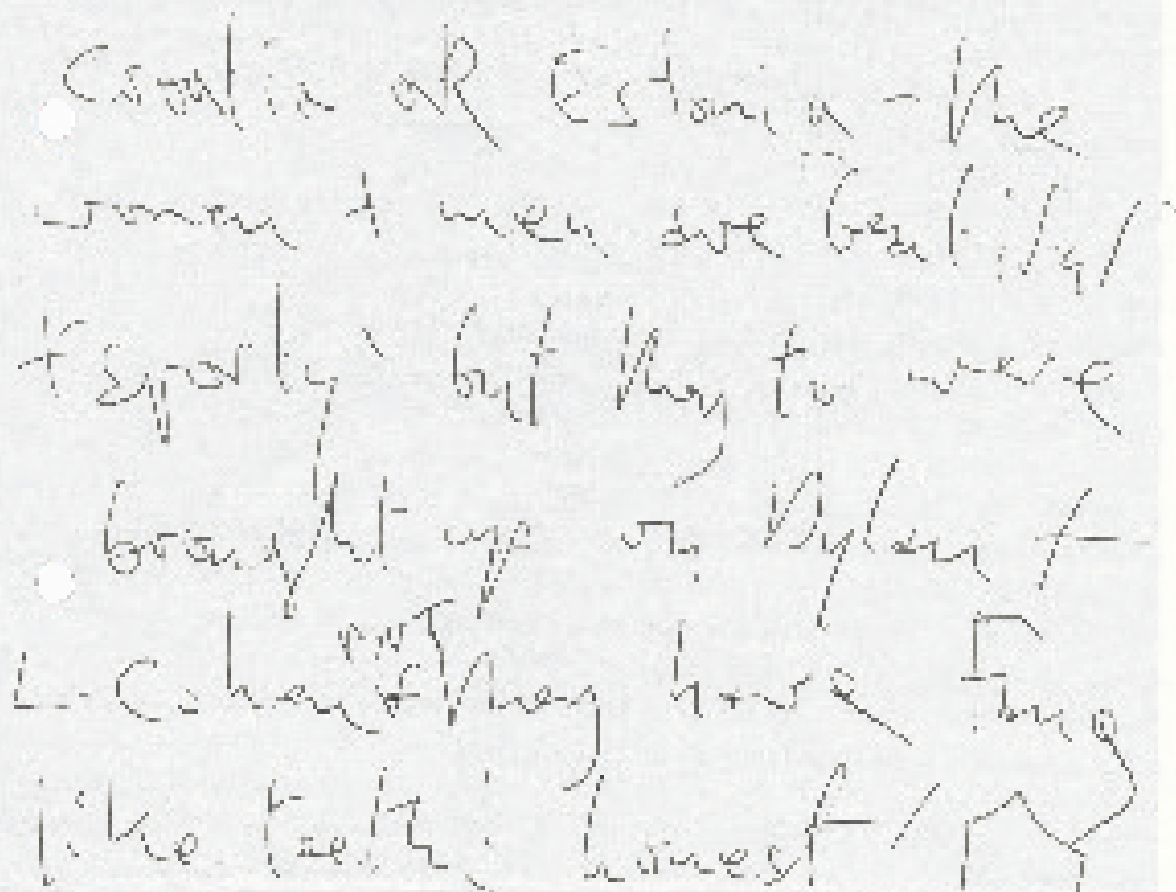 Croatia or Estonia - the
women + men are beautiful
+ sporty, but they to were
brought up on Dylan +
L. Cohen + They have
like teeth! honest -